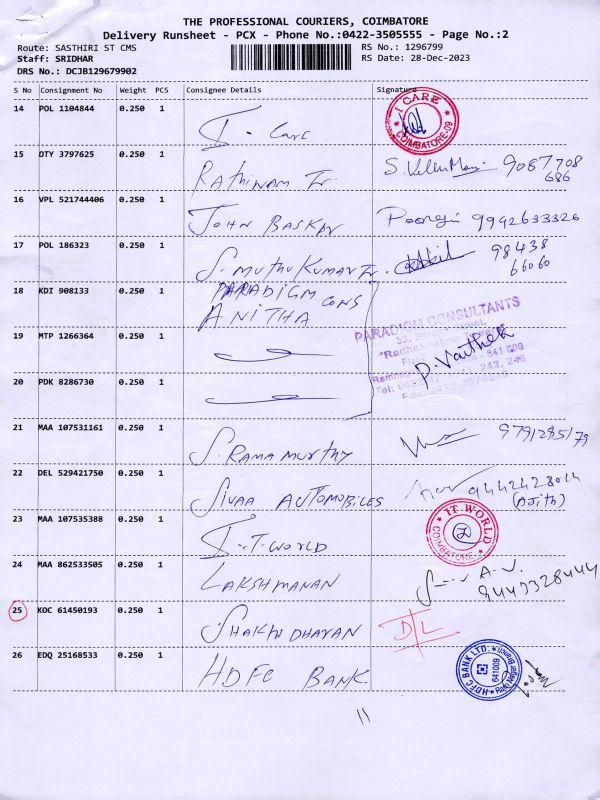 THE PROFESSIONAL COURIERS, COIMBATORE
Delivery Runsheet - PCX - Phone No.:0422-3505555 - Page No.:2
Route: SASTHIRI ST CMS RS No.: 1296799
Staff: SRIDHAR RS Date: 28-Dec-2023
DRS No.: DCJB129679902
S No Consignment No Weight PCS Consignee Details Signature
14 POL 1104844 0.250 1 I - Care I CARE COIMBATORE-09
15 DTY 3797625 0.250 1 RATHINAM Tr. 9087708
686
16 VPL 521744406 0.250 1 JOHN BASKAR 9942633326
17 POL 186323 0.250 1 S. MUTHU KUMAR Tr. 98438
66060
18 KDI 908133 0.250 1 PARADIGM CONS
ANITHA
PARADIGM CONSULTANTS
19 MTP 1266364 0.250 1
20 PDK 8286730 0.250 1 P. Vaithek
21 MAA 107531161 0.250 1 S. RAMA MURTHY 9791285179
22 DEL 529421750 0.250 1 SIVAA AUTOMOBILES 9442428014
(Ajith)
23 MAA 107535388 0.250 1 I-T. WORLD I.T. WORLD COIMBATORE
24 MAA 862533505 0.250 1 LAKSHMANAN A.V.
9443328444
25 KOC 61450193 0.250 1 SHAKTHI DHARAN D/L
26 EDQ 25168533 0.250 1 HDFC BANK HDFC BANK LTD. 641009 Ram Nagar Branch
11